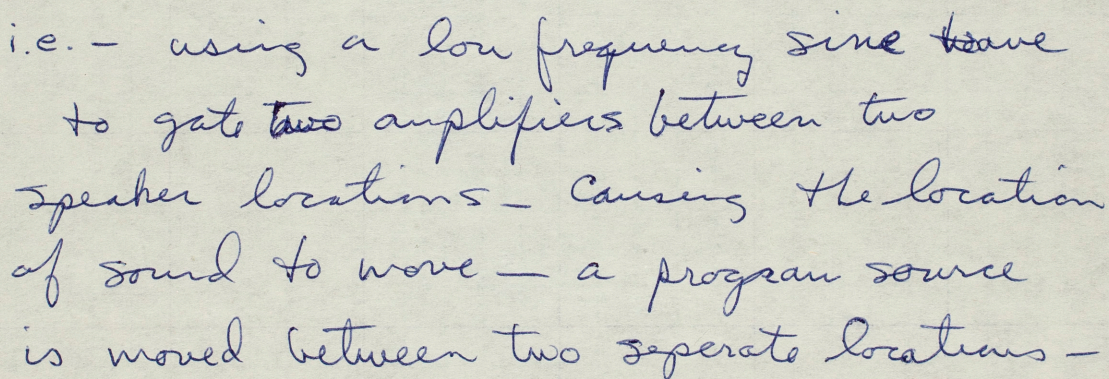 i.e. - using a low frequency sine wave
to gate two amplifiers between two
speaker locations - causing the location
of sound to move — a program source
is moved between two seperate locations -